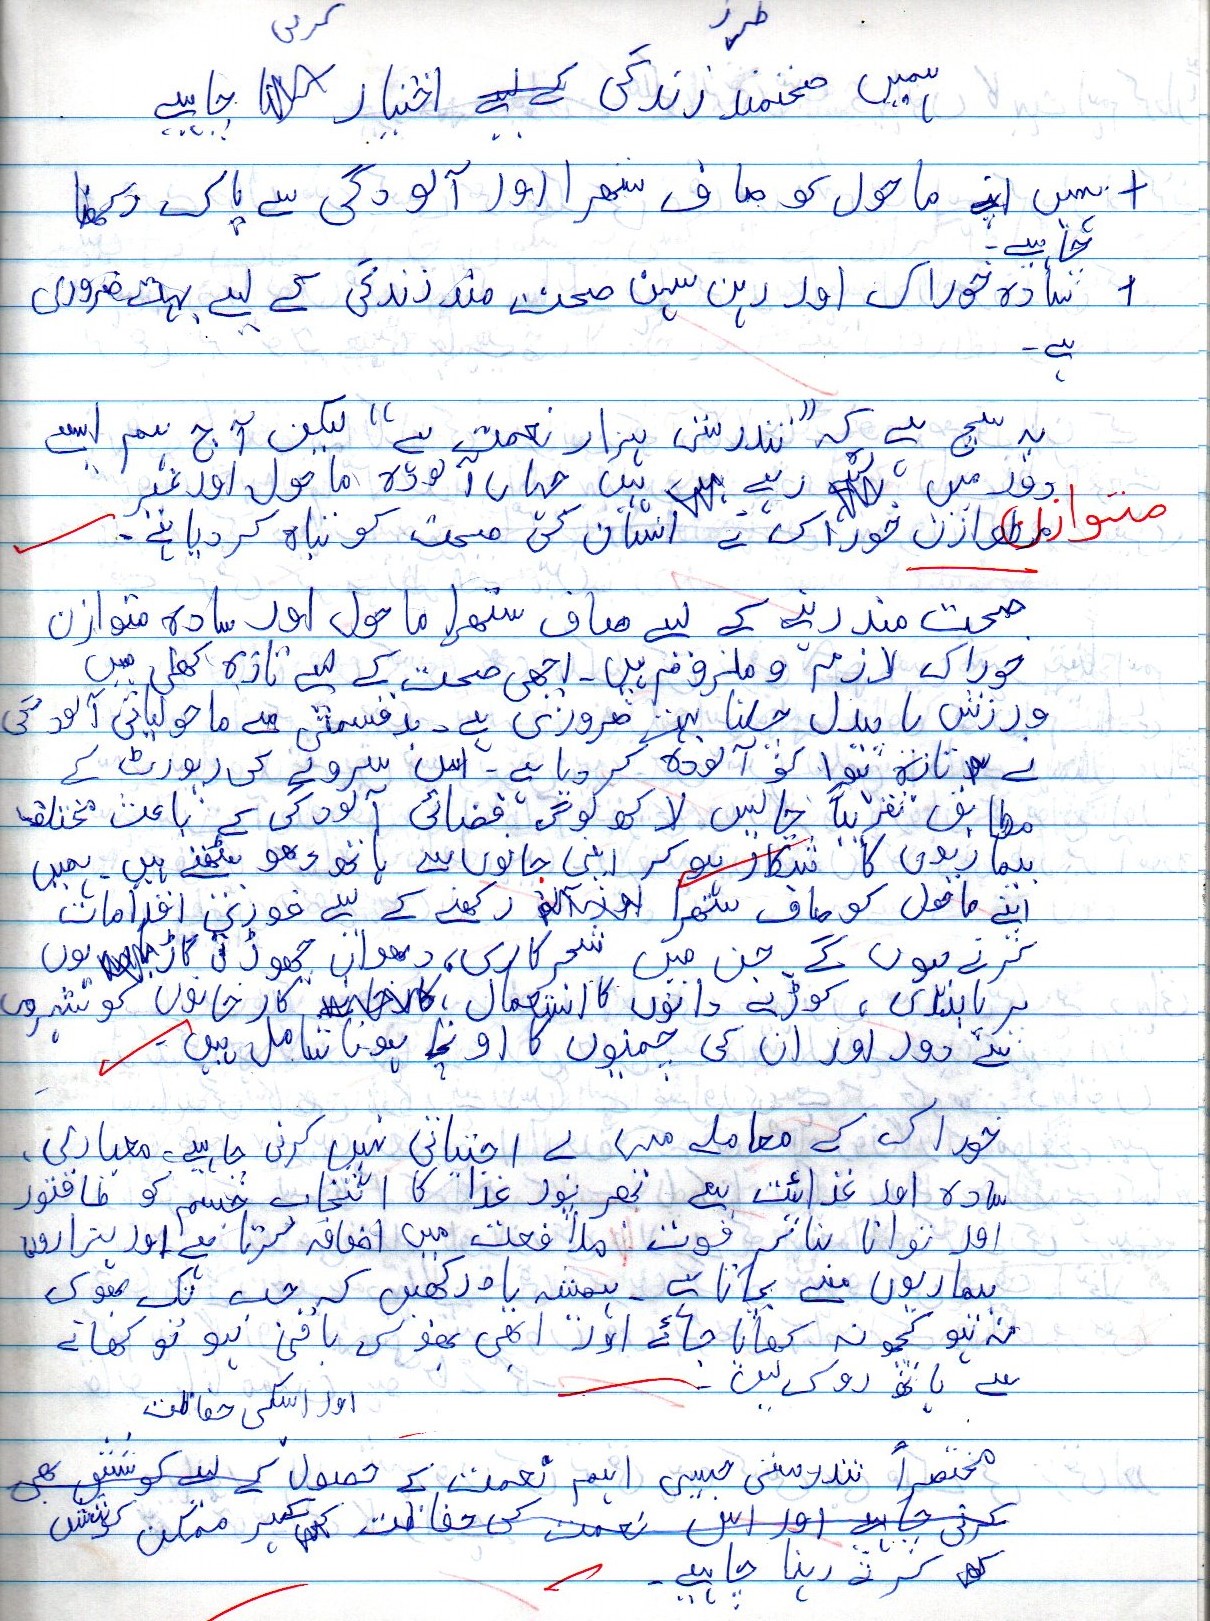 طرز
کرنی
ہمیں صحتمند زندگی کے لیے اختیار چاہیے
+ ہمیں اپنے ماحول کو صاف ستھرا اور آلودگی سے پاک رکھنا
چاہیے۔
+ سادہ خوراک اور رہن سہن صحت مند زندگی کے لیے بہت ضروری
ہے۔
یہ سچ ہے کہ "تندرستی ہزار نعمت ہے" لیکن آج ہم ایسے
دور میں رہ رہے ہیں جہاں آلودہ ماحول اور غیر
متوازن
متوازن خوراک نے انسان کی صحت کو تباہ کر دیا ہے۔
صحت مند رہنے کے لیے صاف ستھرا ماحول اور سادہ متوازن
خوراک لازم و ملزوم ہیں۔ اچھی صحت کے لیے تازہ میں
ورزش یا پیدل چلنا بہت ضروری ہے۔ بدقسمتی سے ماحولیاتی آلودگی
نے تازہ ہوا کو آلودہ کر دیا ہے۔ اس سروے کی رپورٹ کے
مطابق تقریباً چالیس لاکھ لوگ فضائی آلودگی کے باعث مختلف
بیماریوں کا شکار ہو کر اپنی جانوں سے ہاتھ دھو بیٹھتے ہیں۔ ہمیں
اپنے ماحول کو صاف ستھرا رکھنے کے لیے فوری اقدامات
کرنے ہوں گے جن میں شجرکاری، دھواں چھوڑتی گاڑیوں
پر پابندی، کوڑے دانوں کا استعمال، کارخانوں کو شہروں
سے دور اور ان کی چمنیوں کا اونچا ہونا شامل ہیں۔
خوراک کے معاملے میں بے احتیاتی نہیں کرنی چاہیے۔ معیاری،
سادہ اور غذائیت سے بھرپور غذا کا انتخاب جسم کو طاقتور
اور توانا بنا کر قوت مدافعت میں اضافہ کرتا ہے اور ہزاروں
بیماریوں سے بچاتا ہے۔ ہمیشہ یاد رکھیں کہ جب تک بھوک
نہ ہو کچھ نہ کھایا جائے اور ابھی بھوک باقی ہو تو کھانے
سے ہاتھ روک لیں۔
اور اسکی حفاظت
مختصراً تندرستی جیسی اہم نعمت کے حصول کے لیے کوشش بھی
کرنی چاہیے اور اس نعمت کی حفاظت ہر ممکن کوشش
کرتے رہنا چاہیے۔